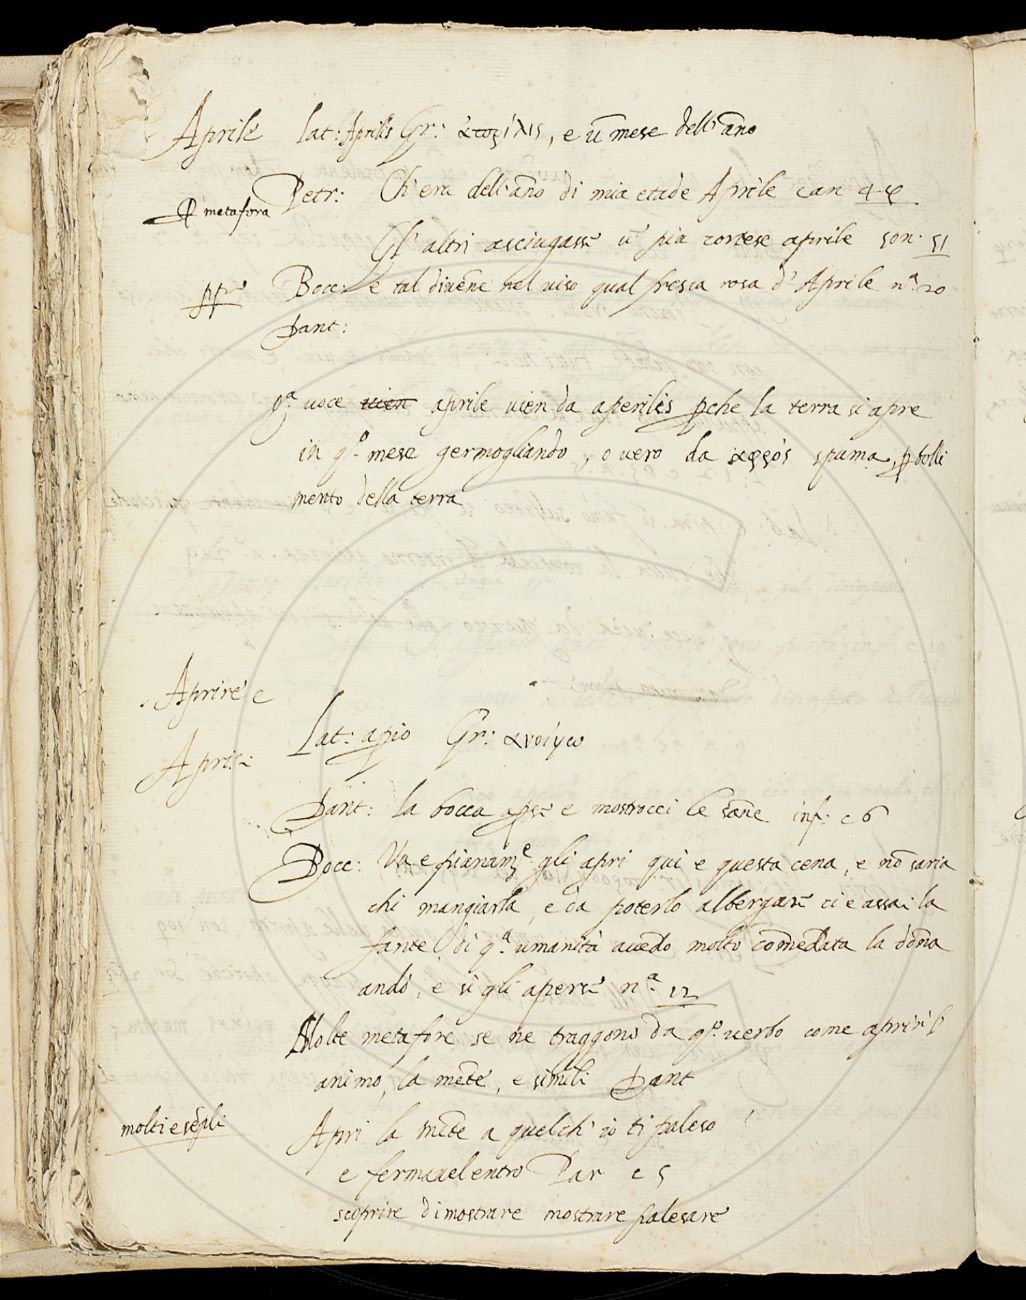 Aprile lat: Aprilis Gr: ἀπρίλις, e ũ mese dell' año
Petr: Ch'era dell'año di mia etade Aprile can 4
ꝑ metafora
Gl'altri asciugasse ũ pia cortese aprile son. 51
ppr̃e Bocc: e tal divẽne nel viso qual fresca rosa d'Aprile nª. 20
Dant:
qª. voce vien aprile vien da aperilis ꝑche la terra si apre
in q°. mese germogliando, o vero da ἀφρὸς spuma, ꝑ bolli
mento della terra
Aprire e
Aprir.
Lat: aprio Gr: ανοίγω
Dant: la bocca aꝑse e mostrocci le sãne inf. c 6
Bocc: Va e pianamẽ gli apri qui e questa cena, e nõ saria
chi mangiarla, e da poterlo albergare ci è assai. la
fante di qª. umanità avẽdo molto cõmẽdata la dõna
andò, e si gli aperse nª. 12
Molte metafore se ne traggono da q°. verbo come aprir l'
animo, la mẽte, e simili Dant
molti esẽpli
Apri la mẽte a quelch' io ti paleso
e fermavelentro Par c 5
scoprire dimostrare mostrare palesare